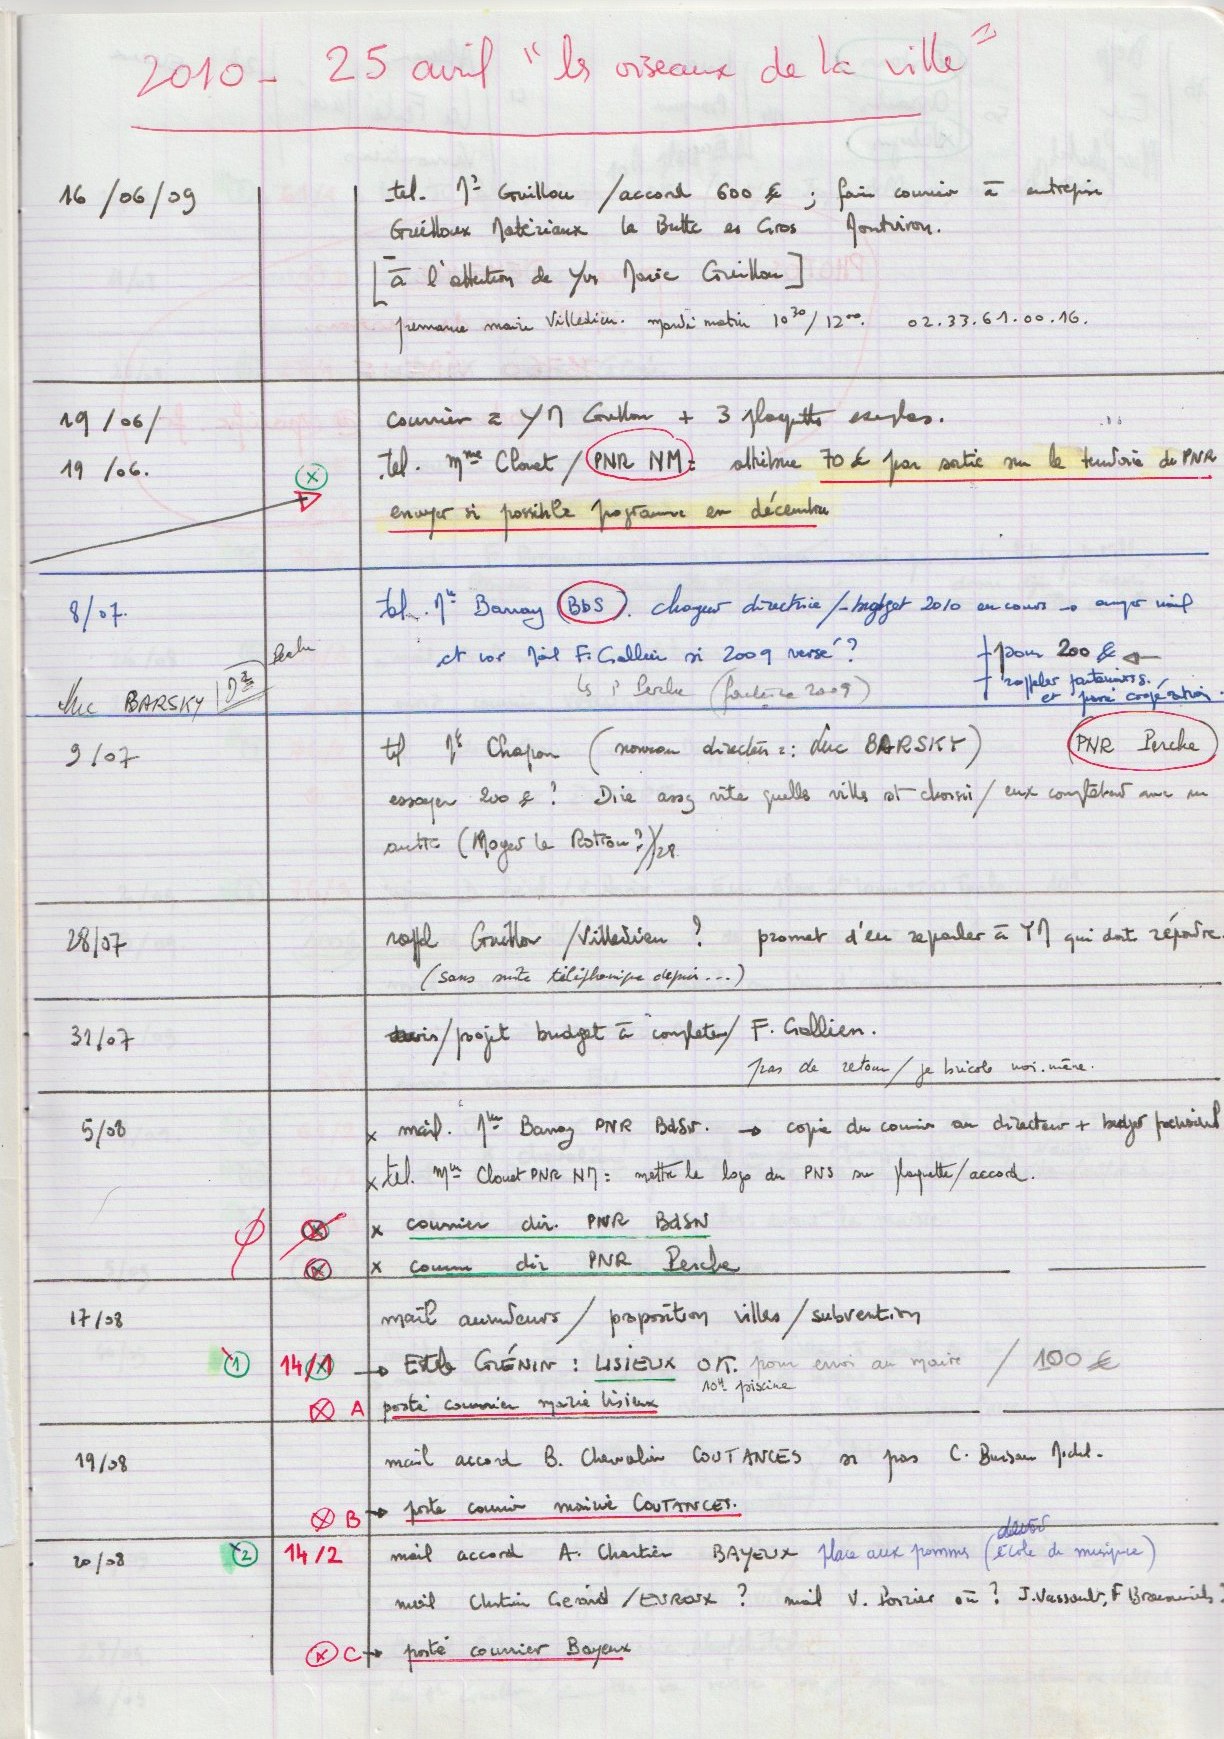 2010 - 25 avril "les oiseaux de la ville"
16/06/09 tel. Mr Guillou / accord 600 € ; faire courrier à entreprise
Guilloux Matériaux la Butte es Gros Montviron.
[à l'attention de Yves Marie Guillou]
permanence mairie Villedieu. mardi matin 10 30/12 00. 02.33.61.00.16.
19/06/ courrier à YM Guillou + 3 plaquettes exemples.
19/06. tel. Mme Clouet / PNR NM : attribue 70 € par sortie sur le territoire du PNR
envoyer si possible programme en décembre
8/07. tel. Mme Barray BdS. changer directrice / budget 2010 en cours → mail
et voir F. Gallien si 2009 versé ? + pour 200 €
Perche ( 2009) + rappeler partenaires.
Luc BARSKY Mr Perche et coopération.
9/07 tel Mme Chapon (nouveau directeur : Luc BARSKY) PNR Perche
essayer 200 € ? Dire assez vite quelle ville est choisie / eux comptaient avec un
autre (Moyer le Rotrou ?)/28
28/07 rappel Guillou / Villedieu ? promet d'en reparler à YM qui doit répondre.
(sans suite téléphonique depuis...)
31/07 /projet budget à compléter / F. Gallien.
pas de retour / je bricole moi-même.
5/08 x mail. Mme Barray PNR BdSN. → copie du courrier au directeur + budget prévisionnel
x tel. Mme Clouet PNR NM : mettre le logo du PNR sur plaquette / accord.
x courrier dir. PNR BdSN
x courrier dir PNR Perche
17/08 mail animateurs / proposition villes / subvention
1 14/1 → Estelle GUÉNIN : LISIEUX OK. pour envoi au maire / 100 €
10h piscine
A posté courrier mairie Lisieux
19/08 mail accord B. Chevalier COUTANCES si pas C. Buisson Michel.
B → posté courrier mairie COUTANCES.
20/08 2 14/2 mail accord A. Chartier BAYEUX place aux pommes (école de musique)
mail Christian Gérard / EVREUX ? mail V. Poirier où ? J. Vassault, F
C → posté courrier Bayeux